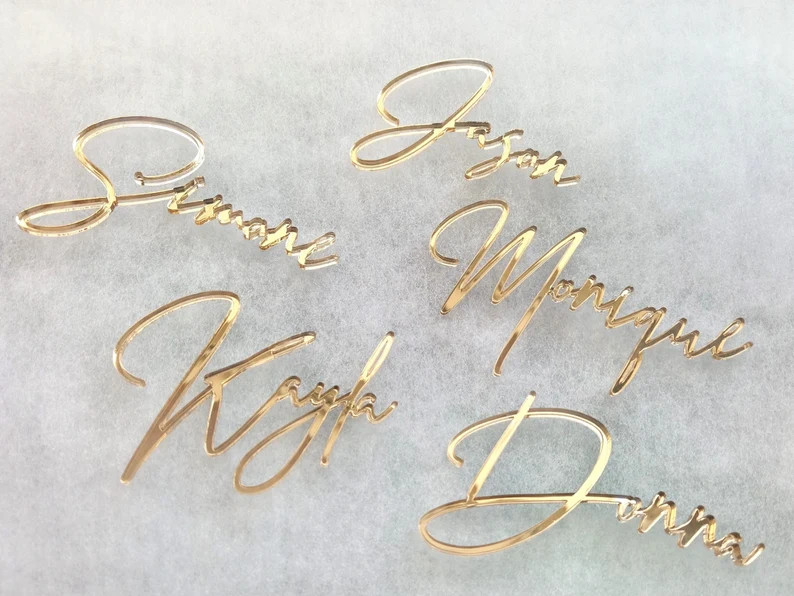 Jason
Simone
Monique
Kayla
Donna